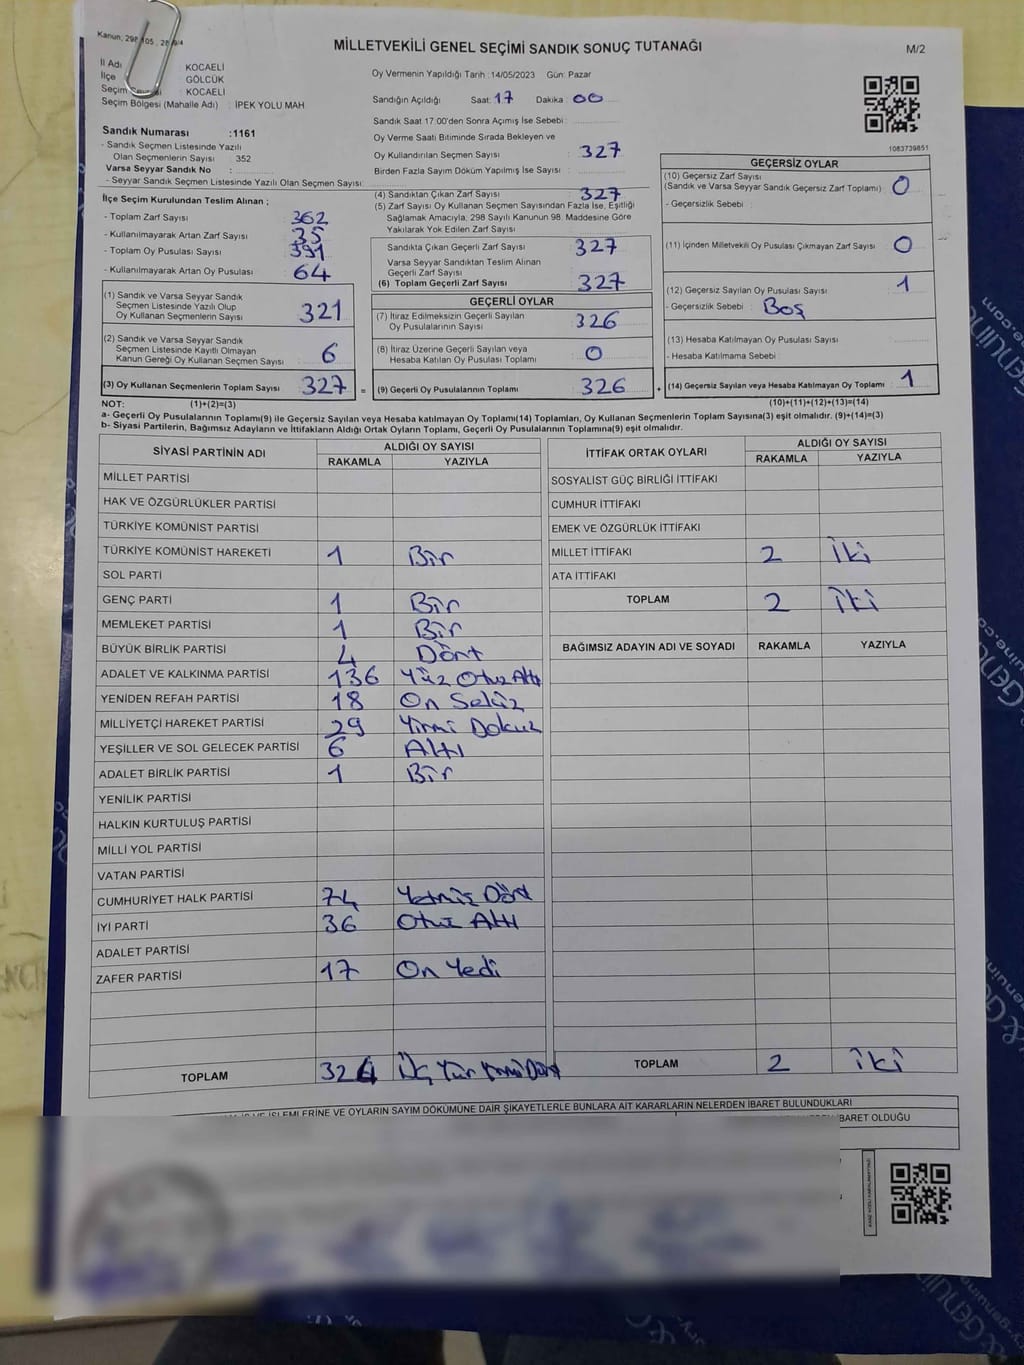 MİLLETVEKİLİ GENEL SEÇİMİ SANDIK SONUÇ TUTANAĞI
M/2
İl Adı KOCAELİ
İlçe GÖLCÜK
KOCAELİ
Seçim Bölgesi (Mahalle Adı) : İPEK YOLU MAH
Sandık Numarası :1161
- Sandık Seçmen Listesinde Yazılı
Olan Seçmenlerin Sayısı : 352
Varsa Seyyar Sandık No :
- Seyyar Sandık Seçmen Listesinde Yazılı Olan Seçmen Sayısı:
Oy Vermenin Yapıldığı Tarih : 14/05/2023 Gün: Pazar
Sandığın Açıldığı Saat: 17 Dakika : 00
Sandık Saat 17:00'den Sonra Açımış İse Sebebi :
Oy Verme Saati Bitiminde Sırada Bekleyen ve
Oy Kullandırılan Seçmen Sayısı : 327
Birden Fazla Sayım Döküm Yapılmış İse Sayısı :
1083739851
İlçe Seçim Kurulundan Teslim Alınan ;
- Toplam Zarf Sayısı : 362
- Kullanılmayarak Artan Zarf Sayısı : 35
- Toplam Oy Pusulası Sayısı : 391
- Kullanılmayarak Artan Oy Pusulası : 64
(1) Sandık ve Varsa Seyyar Sandık
Seçmen Listesinde Yazılı Olup
Oy Kullanan Seçmenlerin Sayısı : 321
(2) Sandık ve Varsa Seyyar Sandık
Seçmen Listesinde Kayıtlı Olmayan
Kanun Gereği Oy Kullanan Seçmen Sayısı : 6
(3) Oy Kullanan Seçmenlerin Toplam Sayısı : 327 =
(4) Sandıktan Çıkan Zarf Sayısı : 327
(5) Zarf Sayısı Oy Kullanan Seçmen Sayısından Fazla İse, Eşitliği
Sağlamak Amacıyla; 298 Sayılı Kanunun 98. Maddesine Göre
Yakılarak Yok Edilen Zarf Sayısı :
Sandıkta Çıkan Geçerli Zarf Sayısı : 327
Varsa Seyyar Sandıktan Teslim Alınan
Geçerli Zarf Sayısı :
(6) Toplam Geçerli Zarf Sayısı : 327
GEÇERLİ OYLAR
(7) İtiraz Edilmeksizin Geçerli Sayılan
Oy Pusulalarının Sayısı : 326
(8) İtiraz Üzerine Geçerli Sayılan veya
Hesaba Katılan Oy Pusulası Toplamı : 0
(9) Geçerli Oy Pusulalarının Toplamı : 326 +
GEÇERSİZ OYLAR
(10) Geçersiz Zarf Sayısı
(Sandık ve Varsa Seyyar Sandık Geçersiz Zarf Toplamı) : 0
- Geçersizlik Sebebi :
(11) İçinden Milletvekili Oy Pusulası Çıkmayan Zarf Sayısı : 0
(12) Geçersiz Sayılan Oy Pusulası Sayısı : 1
- Geçersizlik Sebebi : Boş
(13) Hesaba Katılmayan Oy Pusulası Sayısı :
- Hesaba Katılmama Sebebi :
(14) Geçersiz Sayılan veya Hesaba Katılmayan Oy Toplamı : 1
NOT: (1)+(2)=(3) (10)+(11)+(12)+(13)=(14)
a- Geçerli Oy Pusulalarının Toplamı(9) ile Geçersiz Sayılan veya Hesaba katılmayan Oy Toplamı(14) Toplamları, Oy Kullanan Seçmenlerin Toplam Sayısına(3) eşit olmalıdır. (9)+(14)=(3)
b- Siyasi Partilerin, Bağımsız Adayların ve İttifakların Aldığı Ortak Oyların Toplamı, Geçerli Oy Pusulalarının Toplamına(9) eşit olmalıdır.
SİYASİ PARTİNİN ADI ALDIĞI OY SAYISI
RAKAMLA YAZIYLA
MİLLET PARTİSİ
HAK VE ÖZGÜRLÜKLER PARTİSİ
TÜRKİYE KOMÜNİST PARTİSİ
TÜRKİYE KOMÜNİST HAREKETİ 1 Bir
SOL PARTİ
GENÇ PARTİ 1 Bir
MEMLEKET PARTİSİ 1 Bir
BÜYÜK BİRLİK PARTİSİ 4 Dört
ADALET VE KALKINMA PARTİSİ 136 Yüz Otuz Altı
YENİDEN REFAH PARTİSİ 18 On Sekiz
MİLLİYETÇİ HAREKET PARTİSİ 29 Yirmi Dokuz
YEŞİLLER VE SOL GELECEK PARTİSİ 6 Altı
ADALET BİRLİK PARTİSİ 1 Bir
YENİLİK PARTİSİ
HALKIN KURTULUŞ PARTİSİ
MİLLİ YOL PARTİSİ
VATAN PARTİSİ
CUMHURİYET HALK PARTİSİ 74 Yetmiş Dört
İYİ PARTİ 36 Otuz Altı
ADALET PARTİSİ
ZAFER PARTİSİ 17 On Yedi
TOPLAM 324 Üç Yüz Yirmi Dört
İTTİFAK ORTAK OYLARI ALDIĞI OY SAYISI
RAKAMLA YAZIYLA
SOSYALİST GÜÇ BİRLİĞİ İTTİFAKI
CUMHUR İTTİFAKI
EMEK VE ÖZGÜRLÜK İTTİFAKI
MİLLET İTTİFAKI 2 İki
ATA İTTİFAKI
TOPLAM 2 İki
BAĞIMSIZ ADAYIN ADI VE SOYADI RAKAMLA YAZIYLA
TOPLAM 2 İki
VE İŞLEMLERİNE VE OYLARIN SAYIM DÖKÜMÜNE DAİR ŞİKAYETLERLE BUNLARA AİT KARARLARIN NELERDEN İBARET BULUNDUKLARI
İBARET OLDUĞU